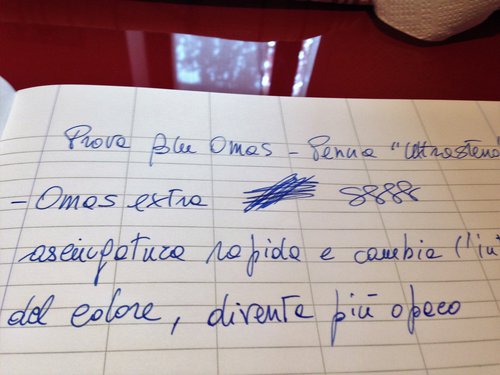 Prova blu Omas - Penna "Ultraslena
- Omas extra 8888
asciugatura rapida e cambia l'in
del colore, diventa più opaco